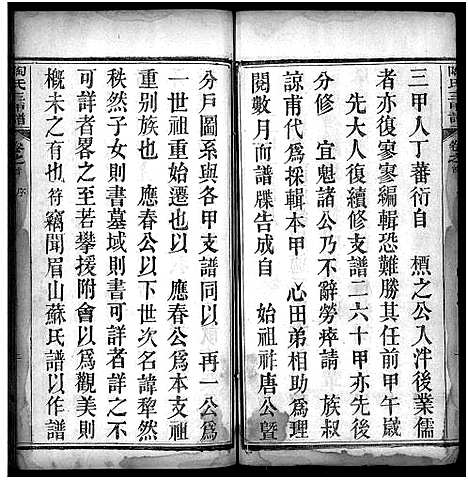 三甲人丁蕃衍自 標之公入泮後業儒
者亦復寥寥編輯恐難勝其任前甲午歲
先大人復續修支譜二六十甲亦先後
分修 宜魁諸公乃不辭勞瘁請 族叔
諒甫代為採輯本甲 心田弟相助為理
閱數月而譜牒告成自 始祖祚唐公暨
分戶圖系與各甲支譜同以 再一公為
一世祖重始遷也以 應春公為本支祖
重別族也 應春公以下世次名諱犂然
秩然子女則書墓域則書可詳者詳之不
可詳者畧之至若攀援附會以為觀美則
概未之有也符竊聞眉山蘇氏譜以作譜
陶氏三甲譜 卷之首 序